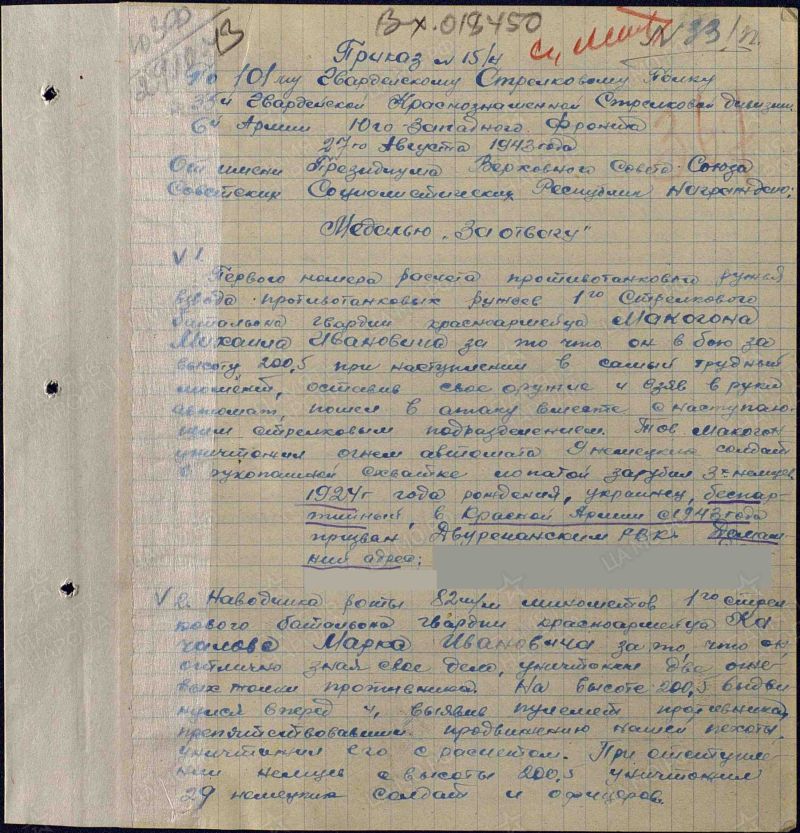 Вх. 018450
Приказ № 15/н
По 101му Гвардейскому Стрелковому Полку
35й Гвардейской Краснознаменной Стрелковой дивизии
6й Армии Юго-Западного Фронта
27го Августа 1943 года
От имени Президиума Верховного Совета Союза
Советских Социалистических Республик награждаю:
Медалью „За отвагу"
V 1.
Первого номера расчета противотанкового ружья
взвода противотанковых ружей 1го Стрелкового
батальона гвардии красноармейца Макогона
Михаила Ивановича за то что он в бою за
высоту 200,5 при наступлении в самый трудный
момент, оставив свое оружие и взяв в руки
автомат, пошел в атаку вместе с наступаю-
щим стрелковым подразделением. Тов. Макогон
уничтожил огнем автомата 9 немецких солдат
в рукопашной схватке лопатой зарубил 3х немцев
1924г года рождения, украинец, беспар-
тийный, в Красной Армии с 1943 года
призван Двуречанским РВК. Домаш-
ний адрес:
V 2. Наводчика роты 82 м/м минометов 1го стрел
кового батальона гвардии красноармейца Ка
чалова Марка Ивановича за то, что он,
отлично зная свое дело, уничтожил две огне-
вых точки противника. На высоте 200,5 выдви
нулся вперед и, выявив пулемет противника,
препятствовавший продвижению нашей пехоты,
уничтожил его с расчетом. При отступле-
нии немцев с высоты 200,5 уничтожил
29 немецких солдат и офицеров.